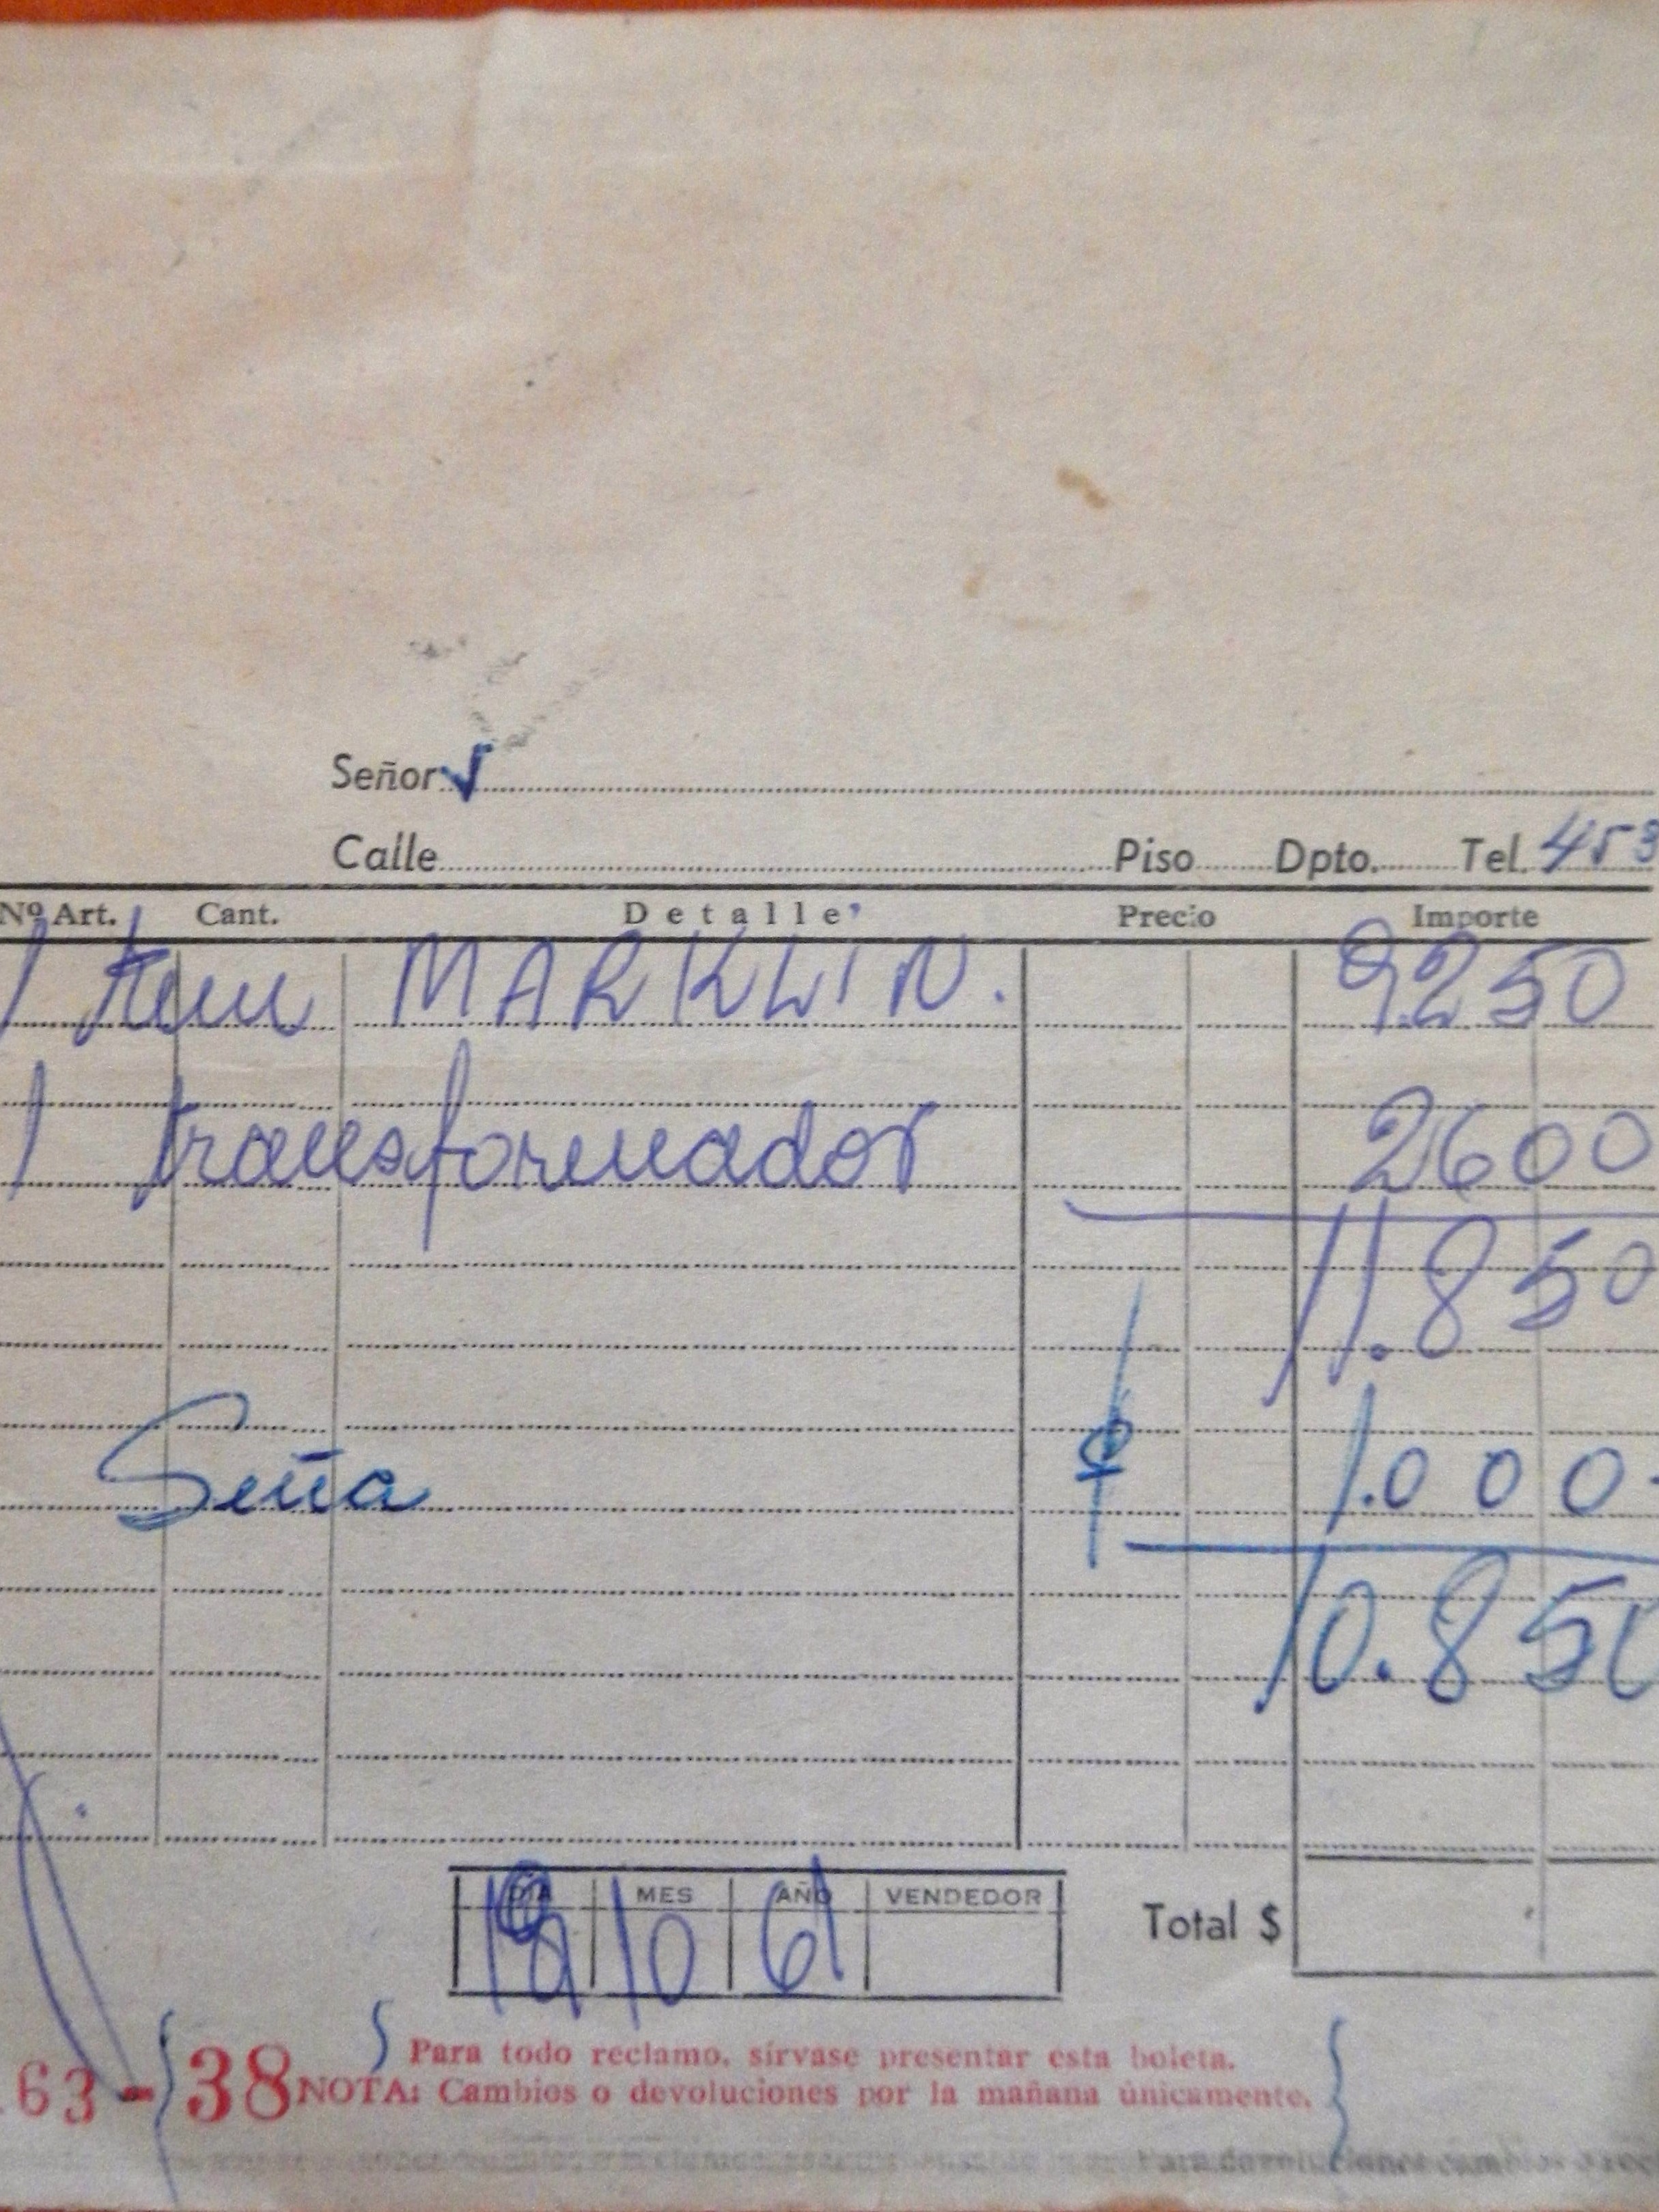 Señor
Calle Piso Dpto. Tel. 453
Nº Art. Cant. Detalle Precio Importe
1 tren MARKLIN. 9250
1 transformador 2600
11.850
Seña 1.000.
10.850
DIA MES AÑO VENDEDOR
19 10 61
Total $
63-38
Para todo reclamo, sírvase presentar esta boleta.
NOTA: Cambios o devoluciones por la mañana únicamente.